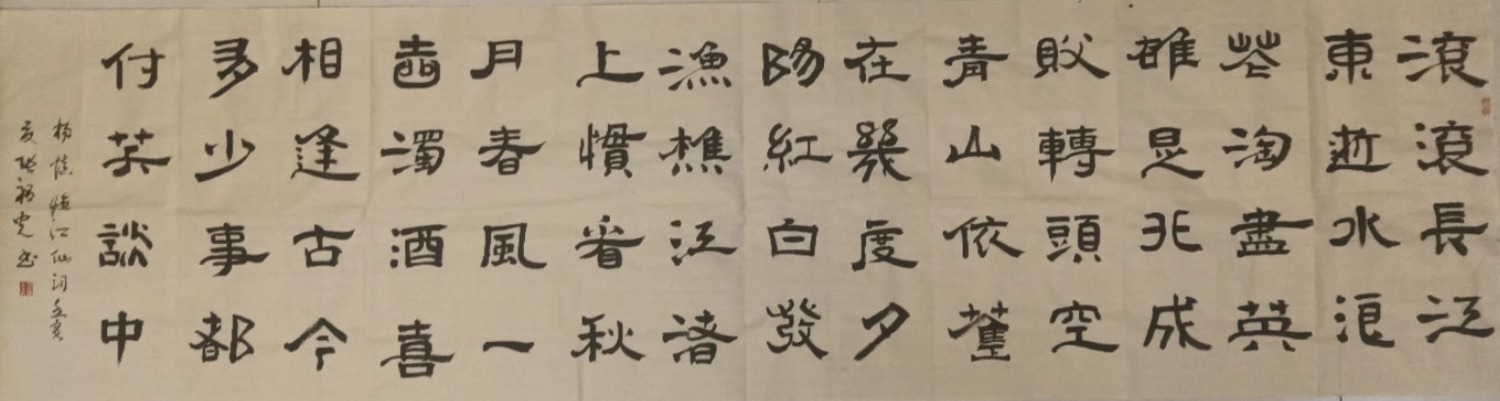 滾滾長江
東逝水浪
花淘盡英
雄是非成
敗轉頭空
青山依舊
在幾度夕
陽紅白發
漁樵江渚
上慣看秋
月春風一
壺濁酒喜
相逢古今
多少事都
付笑談中
楊慎臨江仙詞
书